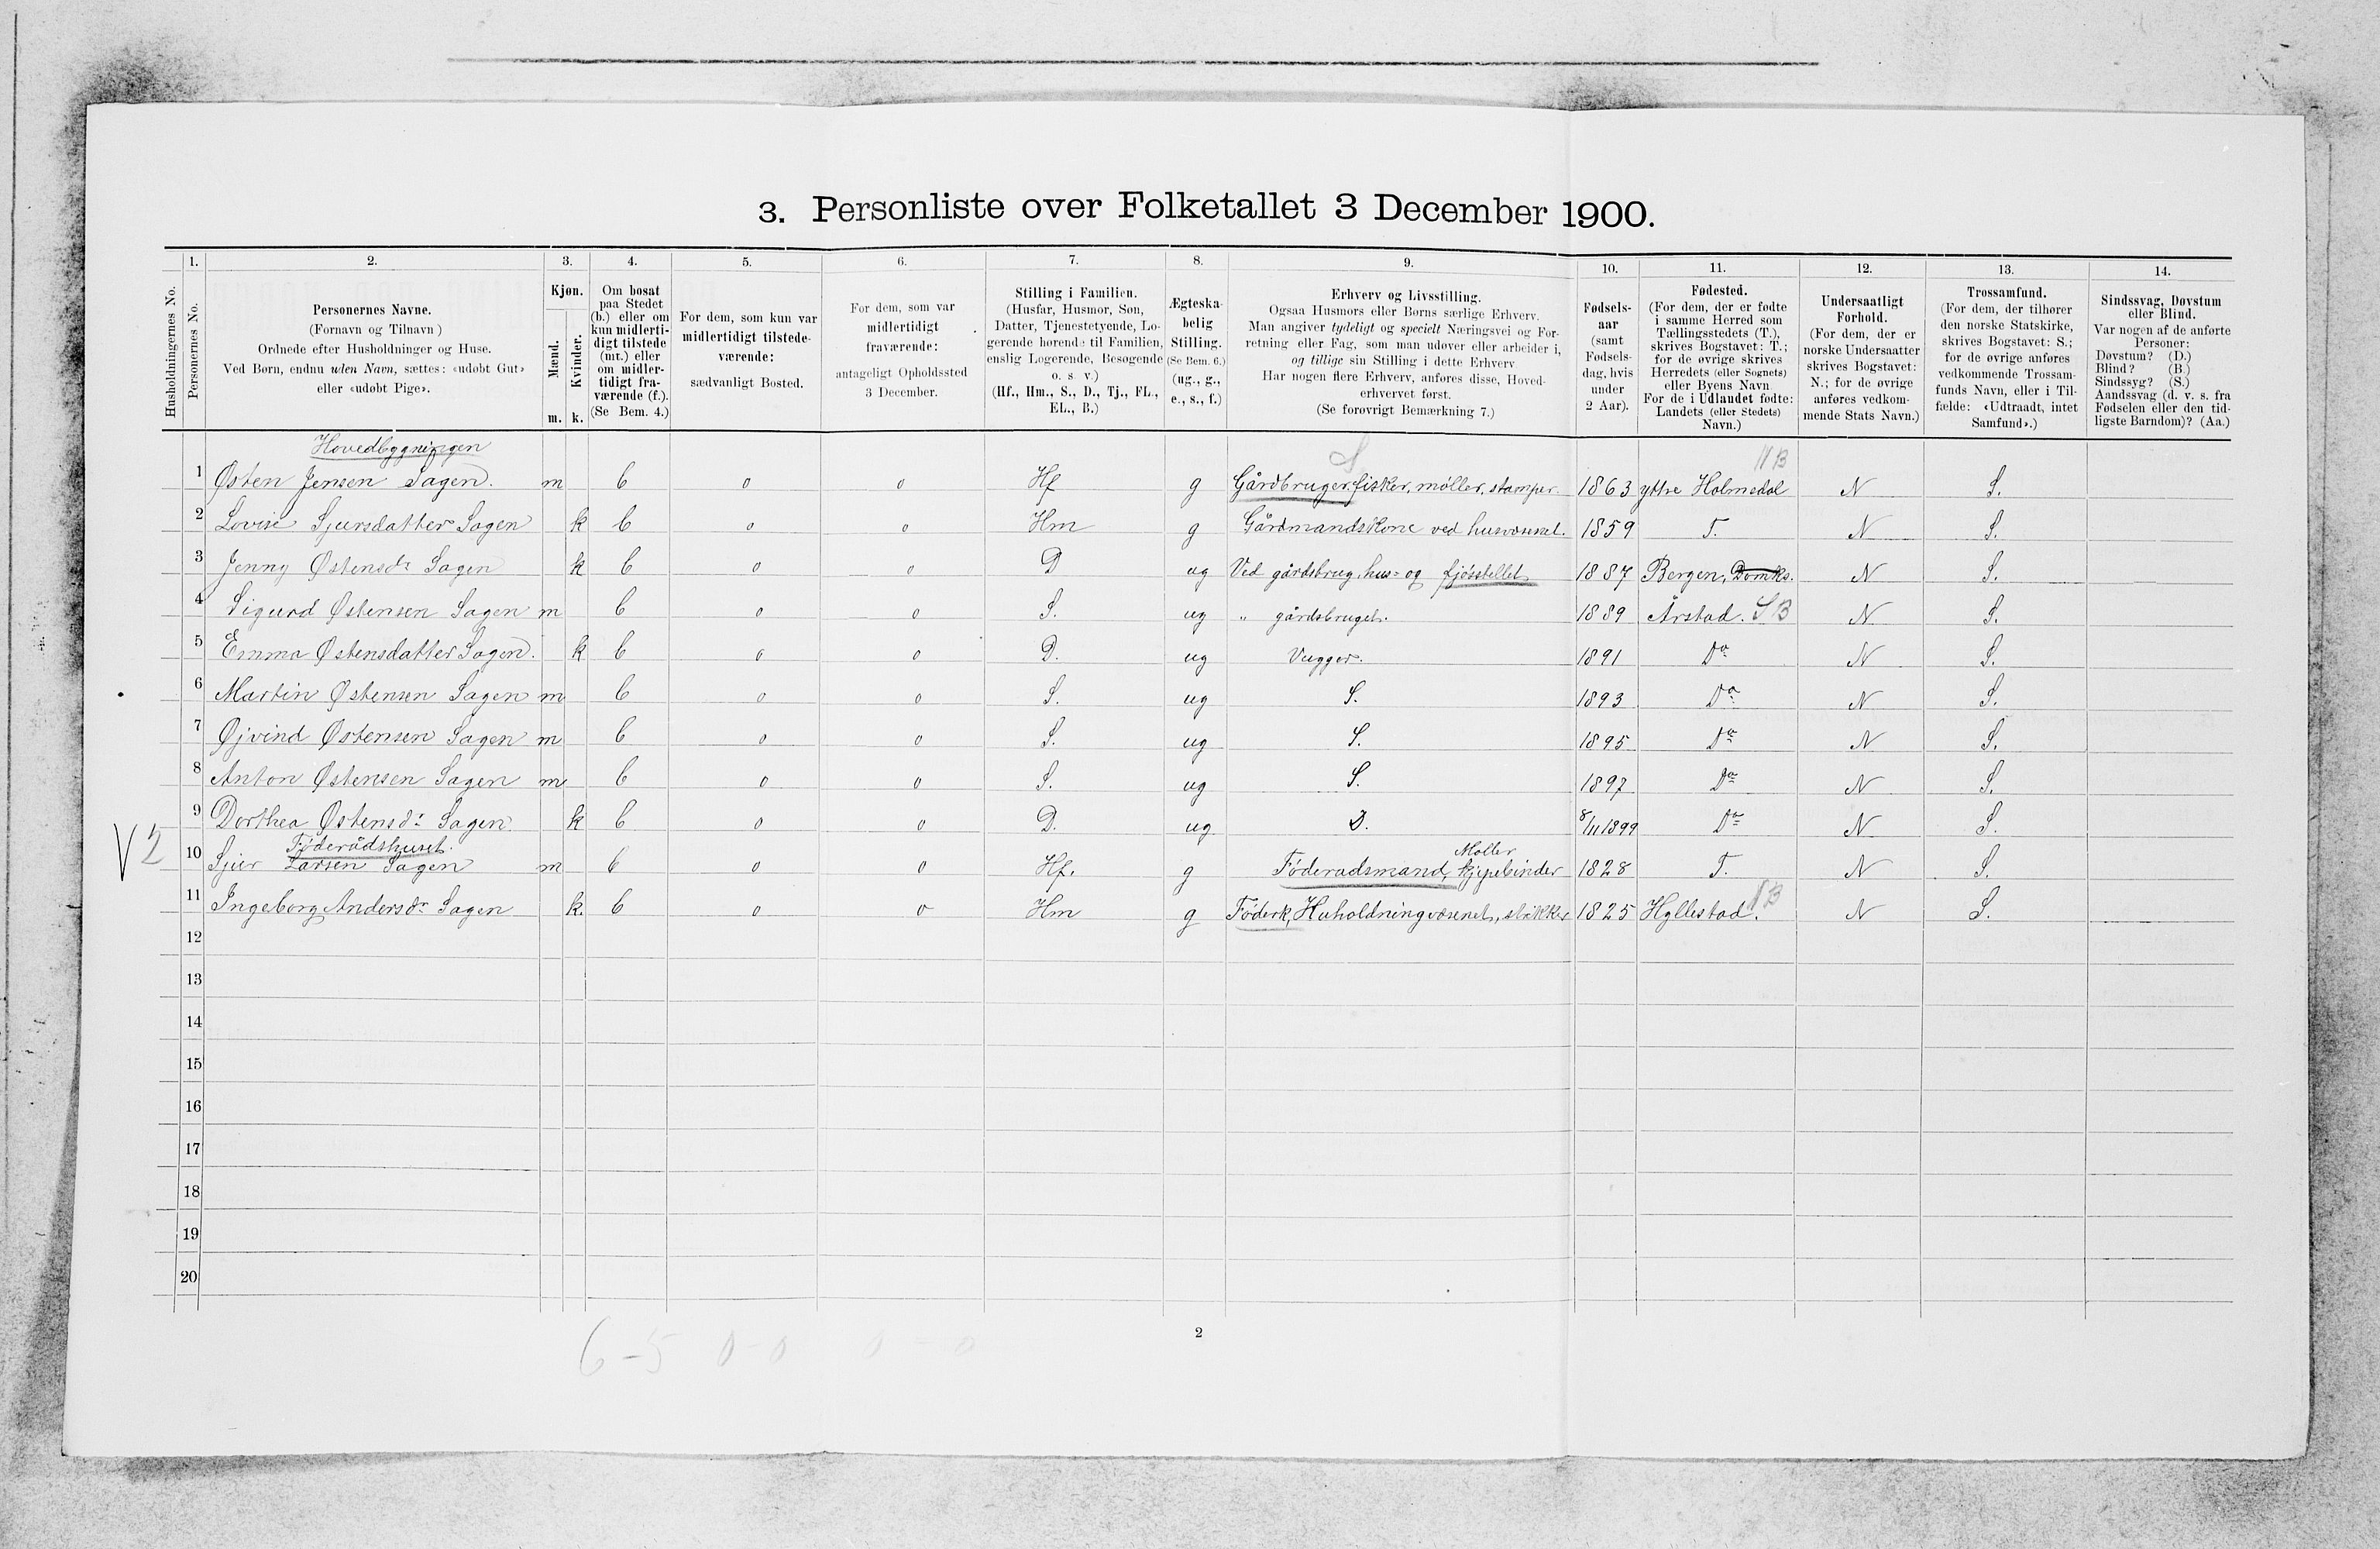 3. Personliste over Folketallet 3 December 1900.
1. 2. 3. 4. 5. 6. 7. 8. 9. 10. 11. 12. 13. 14.
Husholdningernes No.
Personernes No.
Personernes Navne.
(Fornavn og Tilnavn)
Ordnede efter Husholdninger og Huse.
Ved Børn, endnu uden Navn, sættes: «udøbt Gut»
eller «udøbt Pige».
Kjøn.
Mænd.
Kvinder.
m. k.
Om bosat
paa Stedet
(b.) eller om
kun midlerti-
digt tilstede
(mt.) eller
om midler-
tidigt fra-
værende (f.).
(Se Bem. 4.)
For dem, som kun var
midlertidigt tilstede-
værende:
sædvanligt Bosted.
For dem, som var
midlertidigt
fraværende:
antageligt Opholdssted
3 December.
Stilling i Familien.
(Husfar, Husmor, Søn,
Datter, Tjenestetyende, Lo-
gerende hørende til Familien,
enslig Logerende, Besøgende
o. s. v.)
(Hf., Hm., S., D., Tj., FL.,
EL., B.)
Ægteska-
belig
Stilling.
(Se Bem. 6.)
(ug., g.,
e., s., f.)
Erhverv og Livsstilling.
Ogsaa Husmors eller Børns særlige Erhverv.
Man angiver tydeligt og specielt Næringsvei og For-
retning eller Fag, som man udøver eller arbeider i,
og tillige sin Stilling i dette Erhverv
Har nogen flere Erhverv, anføres disse, Hoved-
erhvervet først.
(Se forøvrigt Bemærkning 7.)
Fødsels-
aar
(samt
Fødsels-
dag, hvis
under
2 Aar).
Fødested.
(For dem, der er fødte
i samme Herred som
Tællingsstedets (T.),
skrives Bogstavet: T.;
for de øvrige skrives
Herredets (eller Sognets)
eller Byens Navn
For de i Udlandet fødte:
Landets (eller Stedets)
Navn.)
Undersaatligt
Forhold.
(For dem, der er
norske Undersaatter
skrives Bogstavet:
N.; for de øvrige
anføres vedkom-
mende Stats Navn.)
Trossamfund.
(For dem, der tilhører
den norske Statskirke,
skrives Bogstavet: S.;
for de øvrige anføres
vedkommende Trossam-
funds Navn, eller i Til-
fælde: «Udtraadt, intet
Samfund».)
Sindssvag, Døvstum
eller Blind.
Var nogen af de anførte
Personer:
Døvstum? (D.)
Blind? (B.)
Sindssyg? (S.)
Aandssvag (d. v. s. fra
Fødselen eller den tid-
ligste Barndom)? (Aa.)
Hovedbygningen
S B
1 Østen Jensen Sagen. m b o o Hf g Gårdbruger, fisker, møller, stamper. 1863 yttre Holmedal N S.
2 Lovise Sjursdatter Sagen k b o o Hm g Gårdmandskone ved husvæsnet. 1859 T. N S.
3 Jenny Østensdr Sagen k b o o D ug Ved gårdsbrug, hus- og fjösstellet 1887 Bergen, Domks. N S.
4 Sigurd Østensen Sagen m b o o S. ug " gårdsbruget. 1889 Årstad. S B N S.
5 Emma Østensdatter Sagen. k b o o D. ug Vugger. 1891 Do N S.
6 Martin Østensen Sagen m b o o S. ug S. 1893 Do N S.
7 Øjvind Østensen Sagen m b o o S. ug S. 1895 Do N S.
8 Anton Østensen Sagen m b o o S. ug S. 1897 Do N S.
9 Dorthea Østensdr Sagen k b o o D. ug D. 8/11 1899 Do N S.
V 2
Føderådshuset. Møller
10 Sjur Larsen Sagen m b o o Hf. g Föderadsmand, kjipebinder 1828 T. N S.
11 Ingeborg Andersdr Sagen k. b o o Hm g Föderk, Huholdningvæsnet, strikker 1825 Hyllestad. B N S.
12
13
14
15
16
17
18
19
20
6 - 5 0 - 0 0 - 0
2